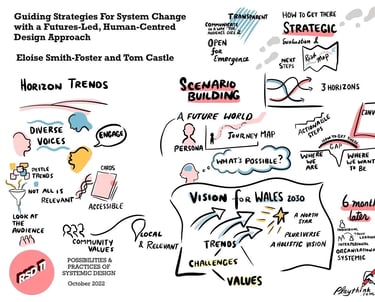 Guiding Strategies For System Change
with a Futures-Led, Human-Centred
Design Approach
Eloise Smith-Foster and Tom Castle
HORIZON TRENDS
DIVERSE
VOICES
ENGAGE
PESTLE
TRENDS
CARDS
NOT ALL IS
RELEVANT
ACCESSIBLE
LOOK AT
THE
AUDIENCE
COMMUNITY
VALUES
LOCAL
& RELEVANT
POSSIBILITIES &
PRACTICES OF
SYSTEMIC DESIGN
October 2022
TRANSPARENT
COMMUNICATE
OPEN
for
Emergence
SCENARIO
BUILDING
A FUTURE WORLD
PERSONA
JOURNEY MAP
WHAT'S POSSIBLE?
VISION for WALES 2030
A NORTH
STAR
PLURIVERSE
A HOLISTIC VISION
TRENDS
CHALLENGES
VALUES
HOW TO GET THERE
STRATEGIC
NEXT
STEPS
3 HORIZONS
ACTIONABLE
STEPS
GAP
WHERE
WE
ARE
WHERE
WE WANT
TO BE
later
ORGANISATIONAL
SYSTEMIC
Playthink